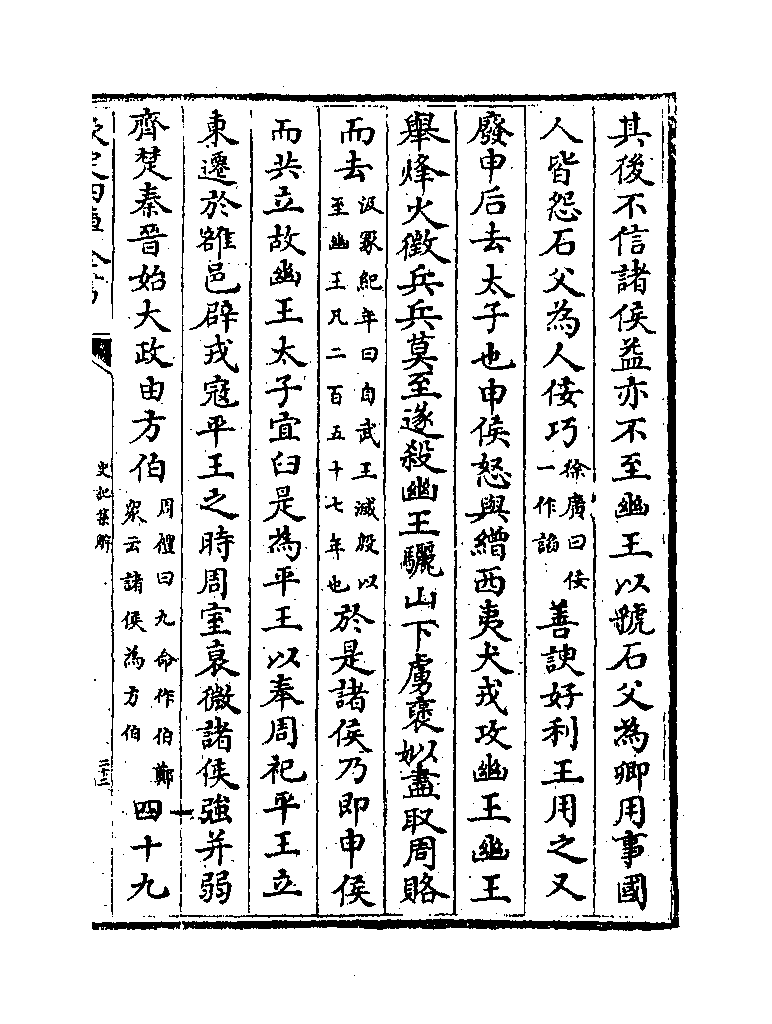 其後不信諸侯益亦不至幽王以虢石父為卿用事國
人皆怨石父為人佞巧徐廣曰佞一作諂善諛好利王用之又
廢申后去太子也申侯怒與繒西夷犬戎攻幽王幽王
舉烽火徵兵兵莫至遂殺幽王驪山下虜襃姒盡取周賂
而去汲冢紀年曰自武王滅殷以至幽王凡二百五十七年也於是諸侯乃即申侯
而共立故幽王太子宜臼是為平王以奉周祀平王立
東遷於雒邑辟戎寇平王之時周室衰微諸侯強并弱
齊楚秦晉始大政由方伯周禮曰九命作伯鄭衆云諸侯為方伯四十九
史記集解
二十三